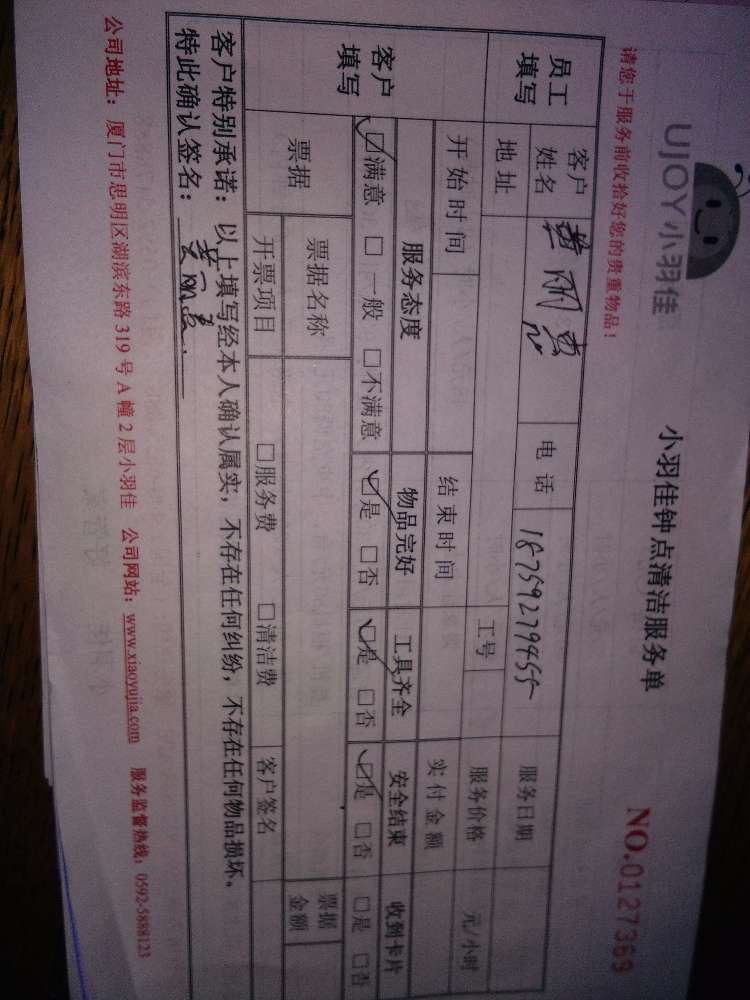 UJOY小羽佳
小羽佳钟点清洁服务单
NO.0127369
请您于服务前收拾好您的贵重物品！
员工填写
客户姓名
电 话 18759279455
服务日期
地 址
工号
服务价格
元/小时
开始时间
结束时间
实付金额
客户填写
服务态度 物品完好 工具齐全 安全结束 收到卡片
☑满意 □一般 □不满意 ☑是 □否 ☑是 □否 ☑是 □否 □是 □否
票据
票据名称
票据金额
开票项目 □服务费 □清洁费 客户签名
客户特别承诺：以上填写经本人确认属实，不存在任何纠纷，不存在任何物品损坏，
特此确认签名：
公司地址：厦门市思明区湖滨东路 319 号 A 幢 2 层小羽佳 公司网站：www.xiaoyujia.com 服务监督热线：0592-5888123